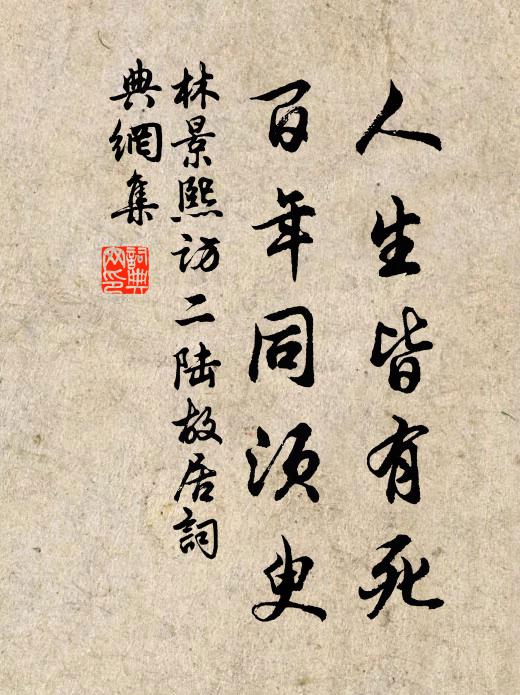 人生皆有死
百年同须臾
林景熙访二陆故居詞
典網集
詞典
网印